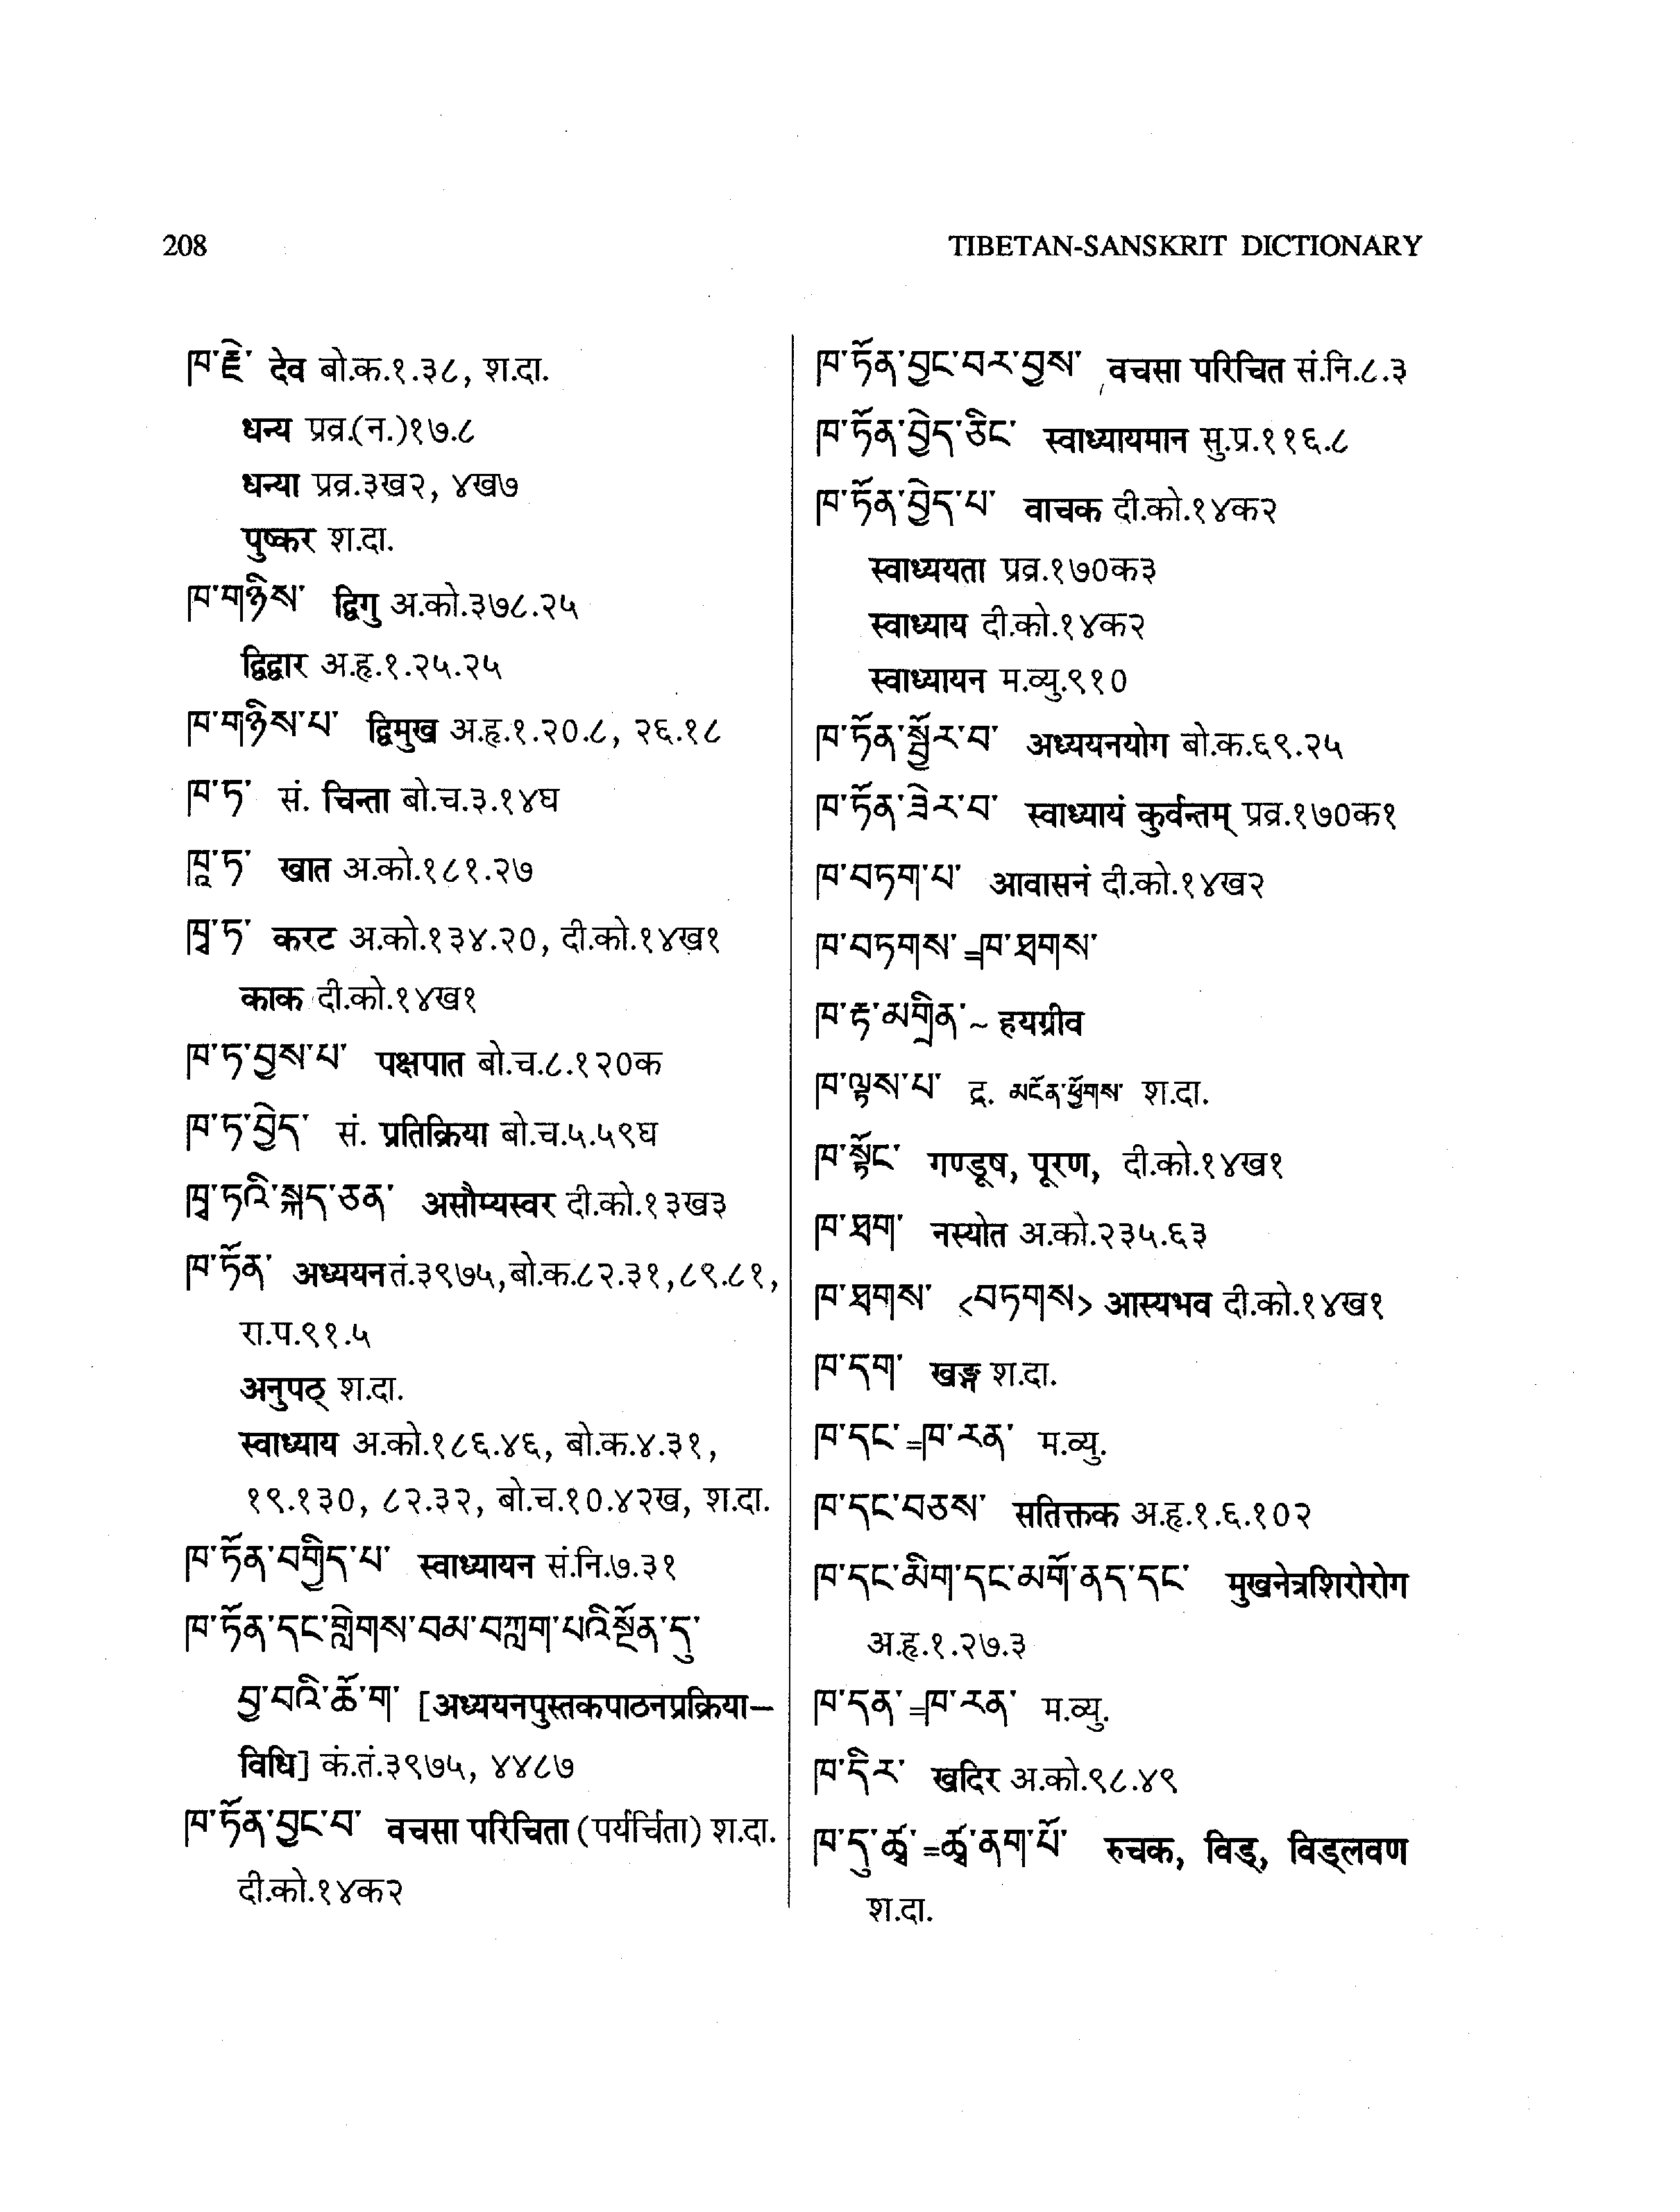 208
TIBETAN-SANSKRIT DICTIONARY
ཁ་རྗེ་ देव बो.क.१.३८, श.दा.
धन्य प्रव्र.(न.)१७.८
धन्या प्रव्र.३ख२, ४ख७
पुष्कर श.दा.
ཁ་གཉིས་ द्विगु अ.को.३७८.२५
द्विद्वार अ.हृ.१.२५.२५
ཁ་གཉིས་པ་ द्विमुख अ.हृ.१.२०.८, २६.१८
ཁ་ཏ་ सं. चिन्ता बो.च.३.१४घ
ཁཱ་ཏ་ खात अ.को.१८१.२७
ཁྭ་ཏ་ करट अ.को.१३४.२०, दी.को.१४ख१
काक दी.को.१४ख१
ཁ་ཏ་བྱས་པ་ पक्षपात बो.च.८.१२०क
ཁ་ཏ་བྱེད་ सं. प्रतिक्रिया बो.च.५.५९घ
ཁྭ་ཏའི་སྐད་ཅན་ असौम्यस्वर दी.को.१३ख३
ཁ་ཏོན་ अध्ययन तं.३९७५, बो.क.८२.३१, ८९.८१,
रा.प.९१.५
अनुपठ् श.दा.
स्वाध्याय अ.को.१८६.४६, बो.क.४.३१,
१९.१३०, ८२.३२, बो.च.१०.४२ख, श.दा.
ཁ་ཏོན་བགྱིད་པ་ स्वाध्यायन सं.नि.७.३१
ཁ་ཏོན་དང་གླེགས་བམ་བཀླག་པའི་སྔོན་དུ་
བྱ་བའི་ཆོ་ག་ [अध्ययनपुस्तकपाठनप्रक्रिया–
विधि] कं.तं.३९७५, ४४८७
ཁ་ཏོན་བྱང་བ་ वचसा परिचिता (पर्यर्चिता) श.दा.
दी.को.१४क२
ཁ་ཏོན་བྱང་བར་བྱས་ वचसा परिचित सं.नि.८.३
ཁ་ཏོན་བྱེད་ཅིང་ स्वाध्यायमान सु.प्र.११६.८
ཁ་ཏོན་བྱེད་པ་ वाचक दी.को.१४क२
स्वाध्ययता प्रव्र.१७०क३
स्वाध्याय दी.को.१४क२
स्वाध्यायन म.व्यु.९१०
ཁ་ཏོན་སྦྱོར་བ་ अध्ययनयोग बो.क.६९.२५
ཁ་ཏོན་ཟེར་བ་ स्वाध्यायं कुर्वन्तम् प्रव्र.१७०क१
ཁ་བཏག་པ་ आवासनं दी.को.१४ख२
ཁ་བཏགས་=ཁ་ཐགས་
ཁ་རྟ་མགྲིན་~ हयग्रीव
ཁ་ལྟས་པ་ द्र. མངོན་ཕྱོགས་ श.दा.
ཁ་སྟོང་ गण्डूष, पूरण, दी.को.१४ख१
ཁ་ཐག་ नस्योत अ.को.२३५.६३
ཁ་ཐགས་ <བཏགས> आस्यभव दी.को.१४ख१
ཁ་དག་ खङ्ग श.दा.
ཁ་དང་=ཁ་རན་ म.व्यु.
ཁ་དང་བཅས་ सतिक्तक अ.हृ.१.६.१०२
ཁ་དང་མིག་དང་མགོ་ནད་དང་ मुखनेत्रशिरोरोग
अ.हृ.१.२७.३
ཁ་དན་=ཁ་རན་ म.व्यु.
ཁ་དིར་ खदिर अ.को.९८.४९
ཁ་དུ་ཚྭ་=ཚྭ་ནག་པོ་ रुचक, विड्, विड्लवण
श.दा.